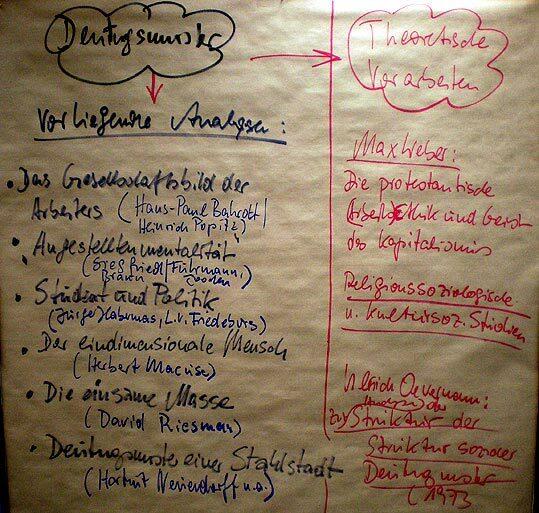 Deutungsmuster
Vorliegende Analysen:
• Das Gesellschaftsbild der
Arbeiters (Hans-Paul Bahrdt/
Heinrich Popitz)
• Angestelltenmentalität
(Siegfried Braun/Fuhrmann,
• Student und Politik
(Jürgen Habermas, L.v. Friedeburg)
• Der eindimensionale Mensch
(Herbert Marcuse)
• Die einsame Masse
(David Riesman)
• Deutungsmuster einer Stahlstadt
(Hartmut Neuendorff u.a.)
Theoretische
Vorarbeiten
Max Weber:
Die protestantische
Arbeitsethik und Geist
des Kapitalismus
Religionssoziologische
u. kultursoz. Studien
Ulrich Oevermann:
zur Analyse der
Struktur der
Struktur sozialer
Deutungsmuster
(1973